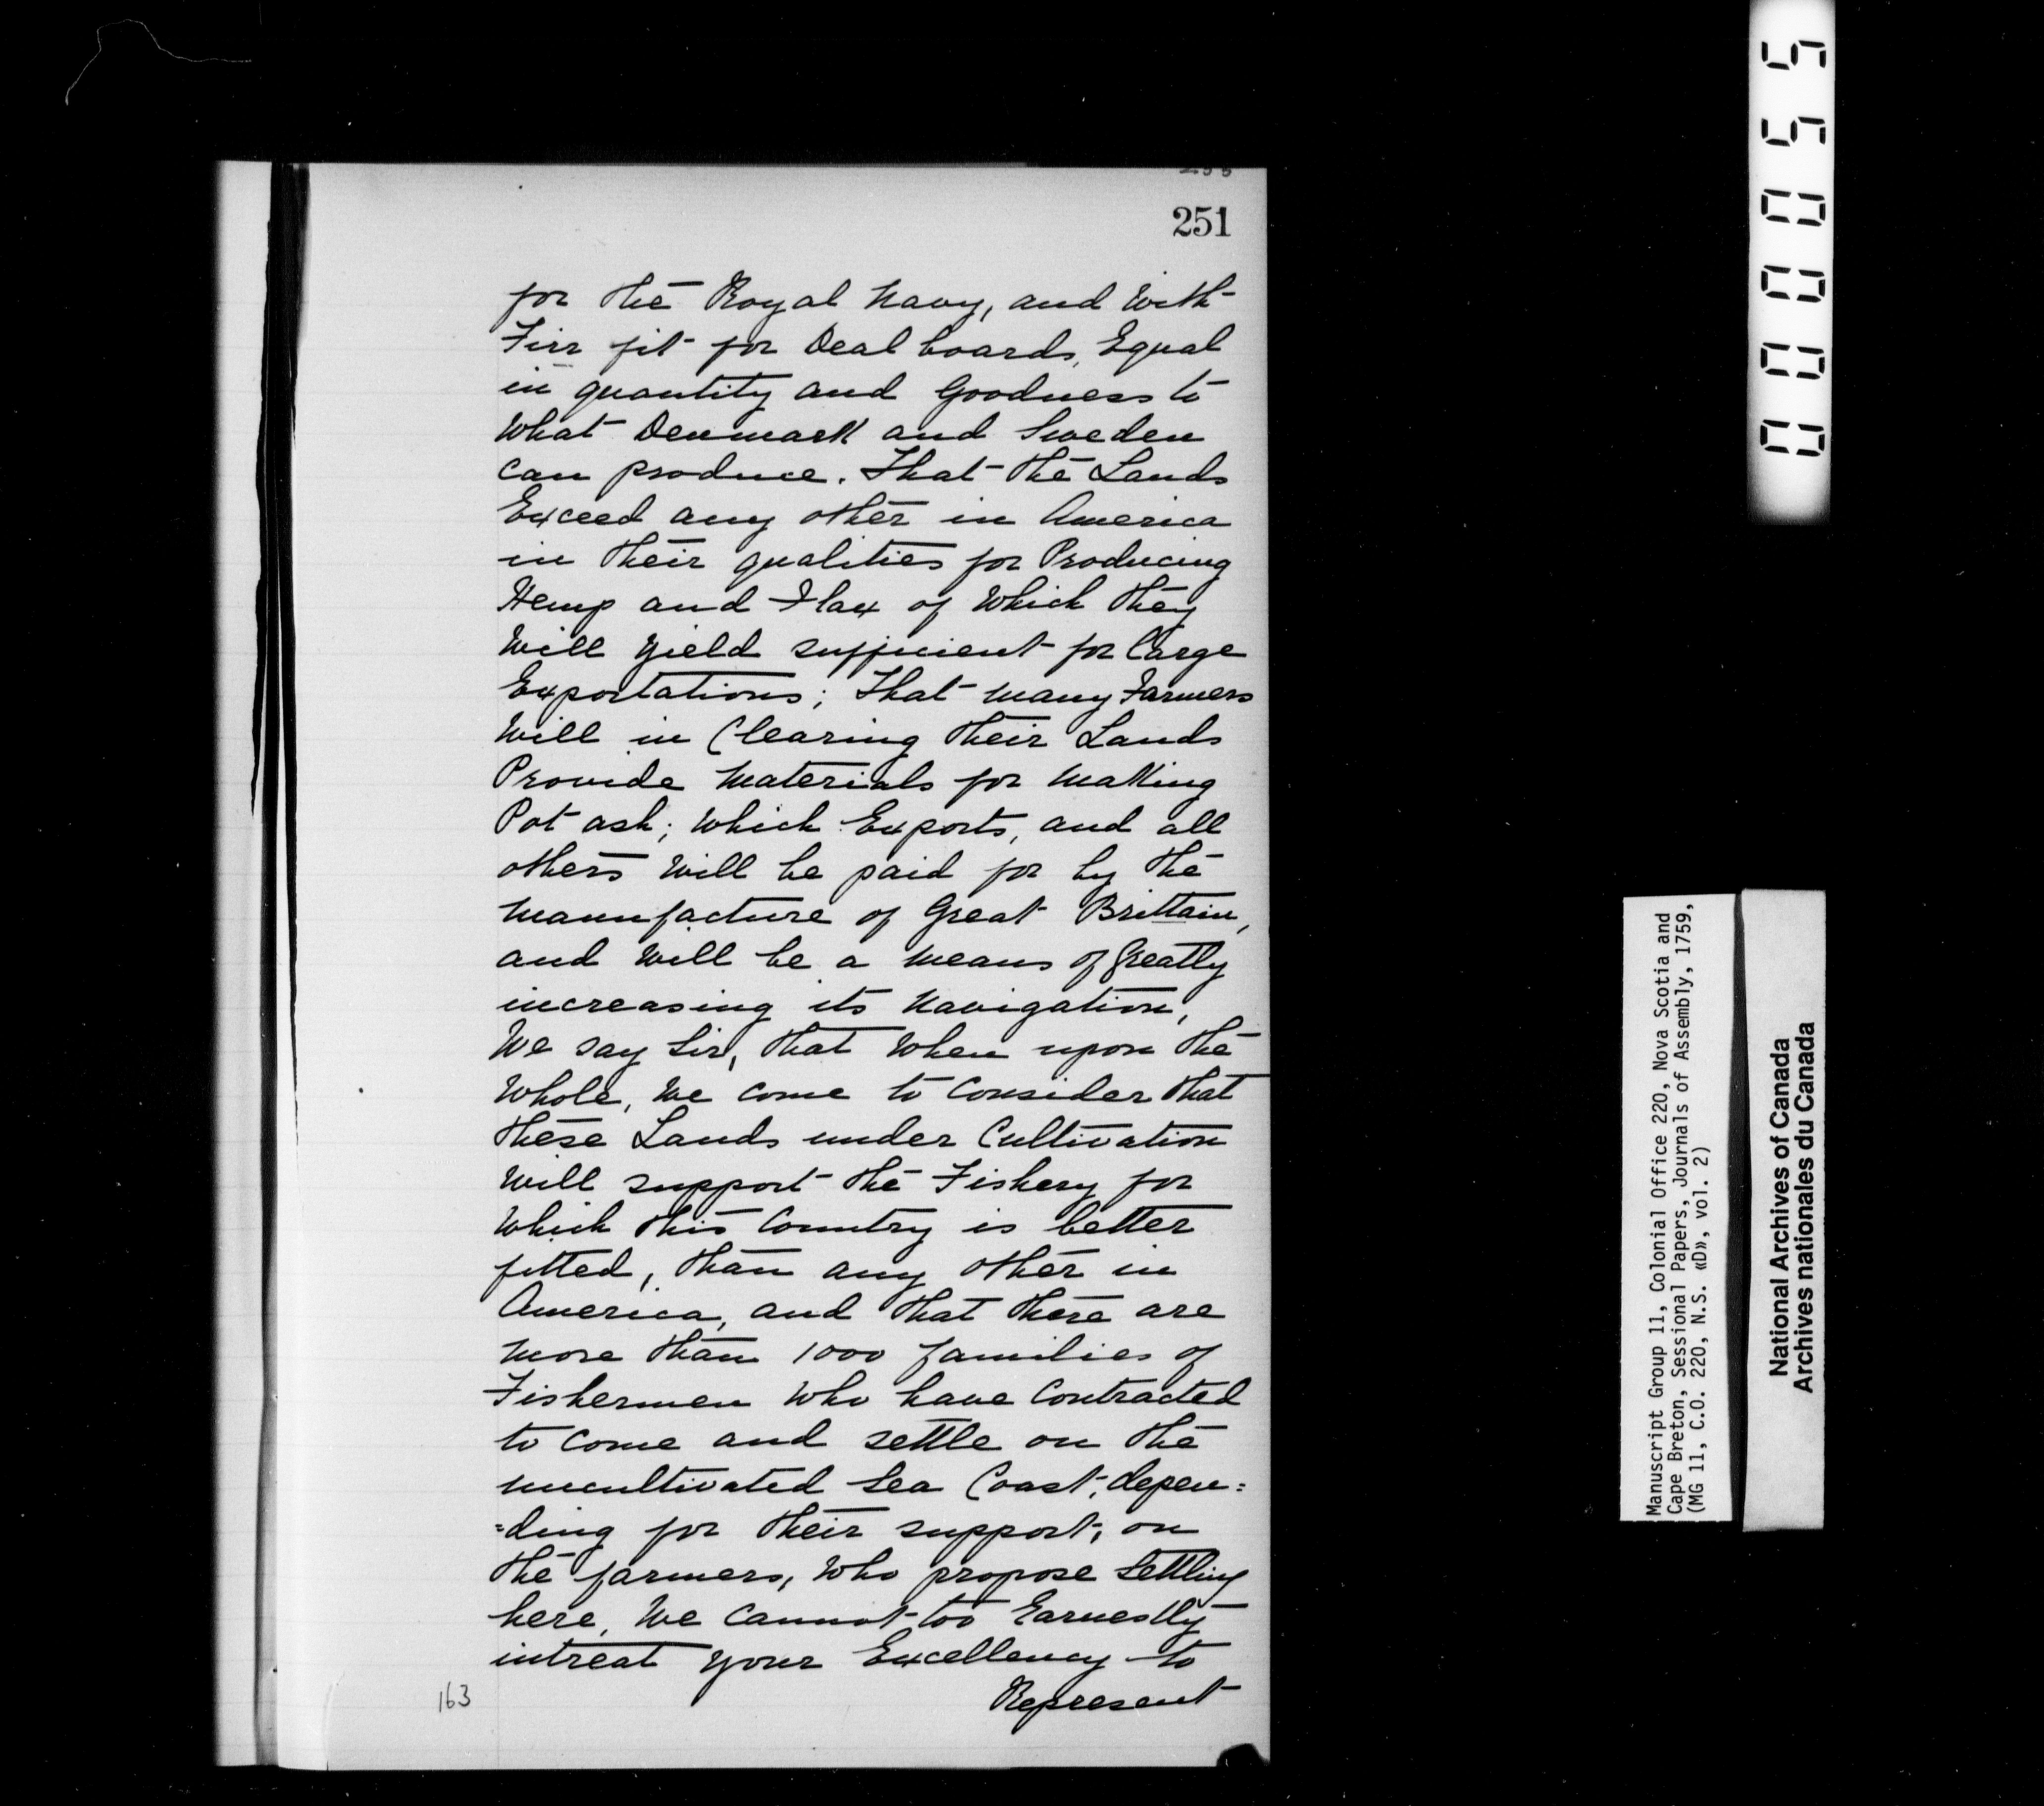 251
for the Royal Navy, and With
Firr fit for Deal boards, Equal
in quantity and Goodness to
What Denmark and Sweden
can produce. That the Lands
Exceed any other in America
in their qualities for Producing
Hemp and Flax of Which they
Will yield sufficient for Large
Exportations; That many Farmers
Will in Clearing their Lands
Provide Materials for Making
Pot ash; Which Exports, and all
others Will be paid for by the
Manufacture of Great Brittain,
and Will be a Means of Greatly
increasing its Navigation,
We say Sir, that When upon the
Whole, We come to Consider that
these Lands under Cultivation
Will support the Fishery for
Which this Country is better
fitted, than any other in
America, and that there are
More than 1000 families of
Fishermen Who have Contracted
to Come and settle on the
uncultivated Sea Coast, depen:
:ding for their support, on
the farmers, Who propose Settling
here, We Cannot too Earnestly
intreat your Excellency to
Represent
163
000055
Manuscript Group 11, Colonial Office 220, Nova Scotia and
Cape Breton, Sessional Papers, Journals of Assembly, 1759,
(MG 11, C.O. 220, N.S. «D», vol. 2)
National Archives of Canada
Archives nationales du Canada